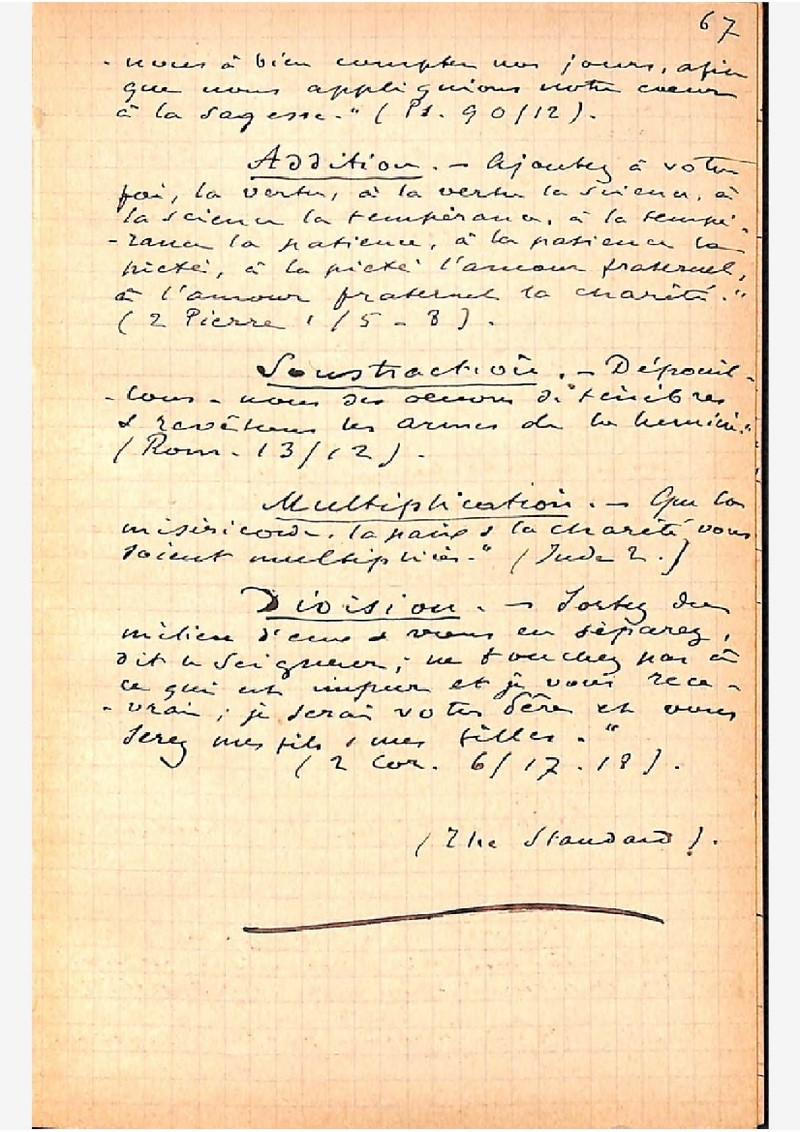 67
- nous à bien compter nos jours, afin
que nous appliquions notre coeur
à la sagesse." (Ps. 90/12).
Addition. - Ajoutez à votre
foi, la vertu, à la vertu la science, à
la science la tempérance, à la tempé-
-rance la patience, à la patience la
piété, à la piété l'amour fraternel,
à l'amour fraternel la charité."
(2 Pierre 1/5-8).
Soustraction. - Dépouil-
-lons-nous des oeuvres de ténèbres
& revêtons les armes de la lumière."
(Rom. 13/12).
Multiplication. - Que la
miséricorde, la paix & la charité vous
soient multipliées." (Jude 2.)
Division. - Sortez du
milieu d'eux & vous en séparez,
dit le Seigneur; ne touchez pas à
ce qui est impur et je vous rece-
-vrai; je serai votre Père et vous
serez mes fils & mes filles."
(2 Cor. 6/17.18).
(The Standard).